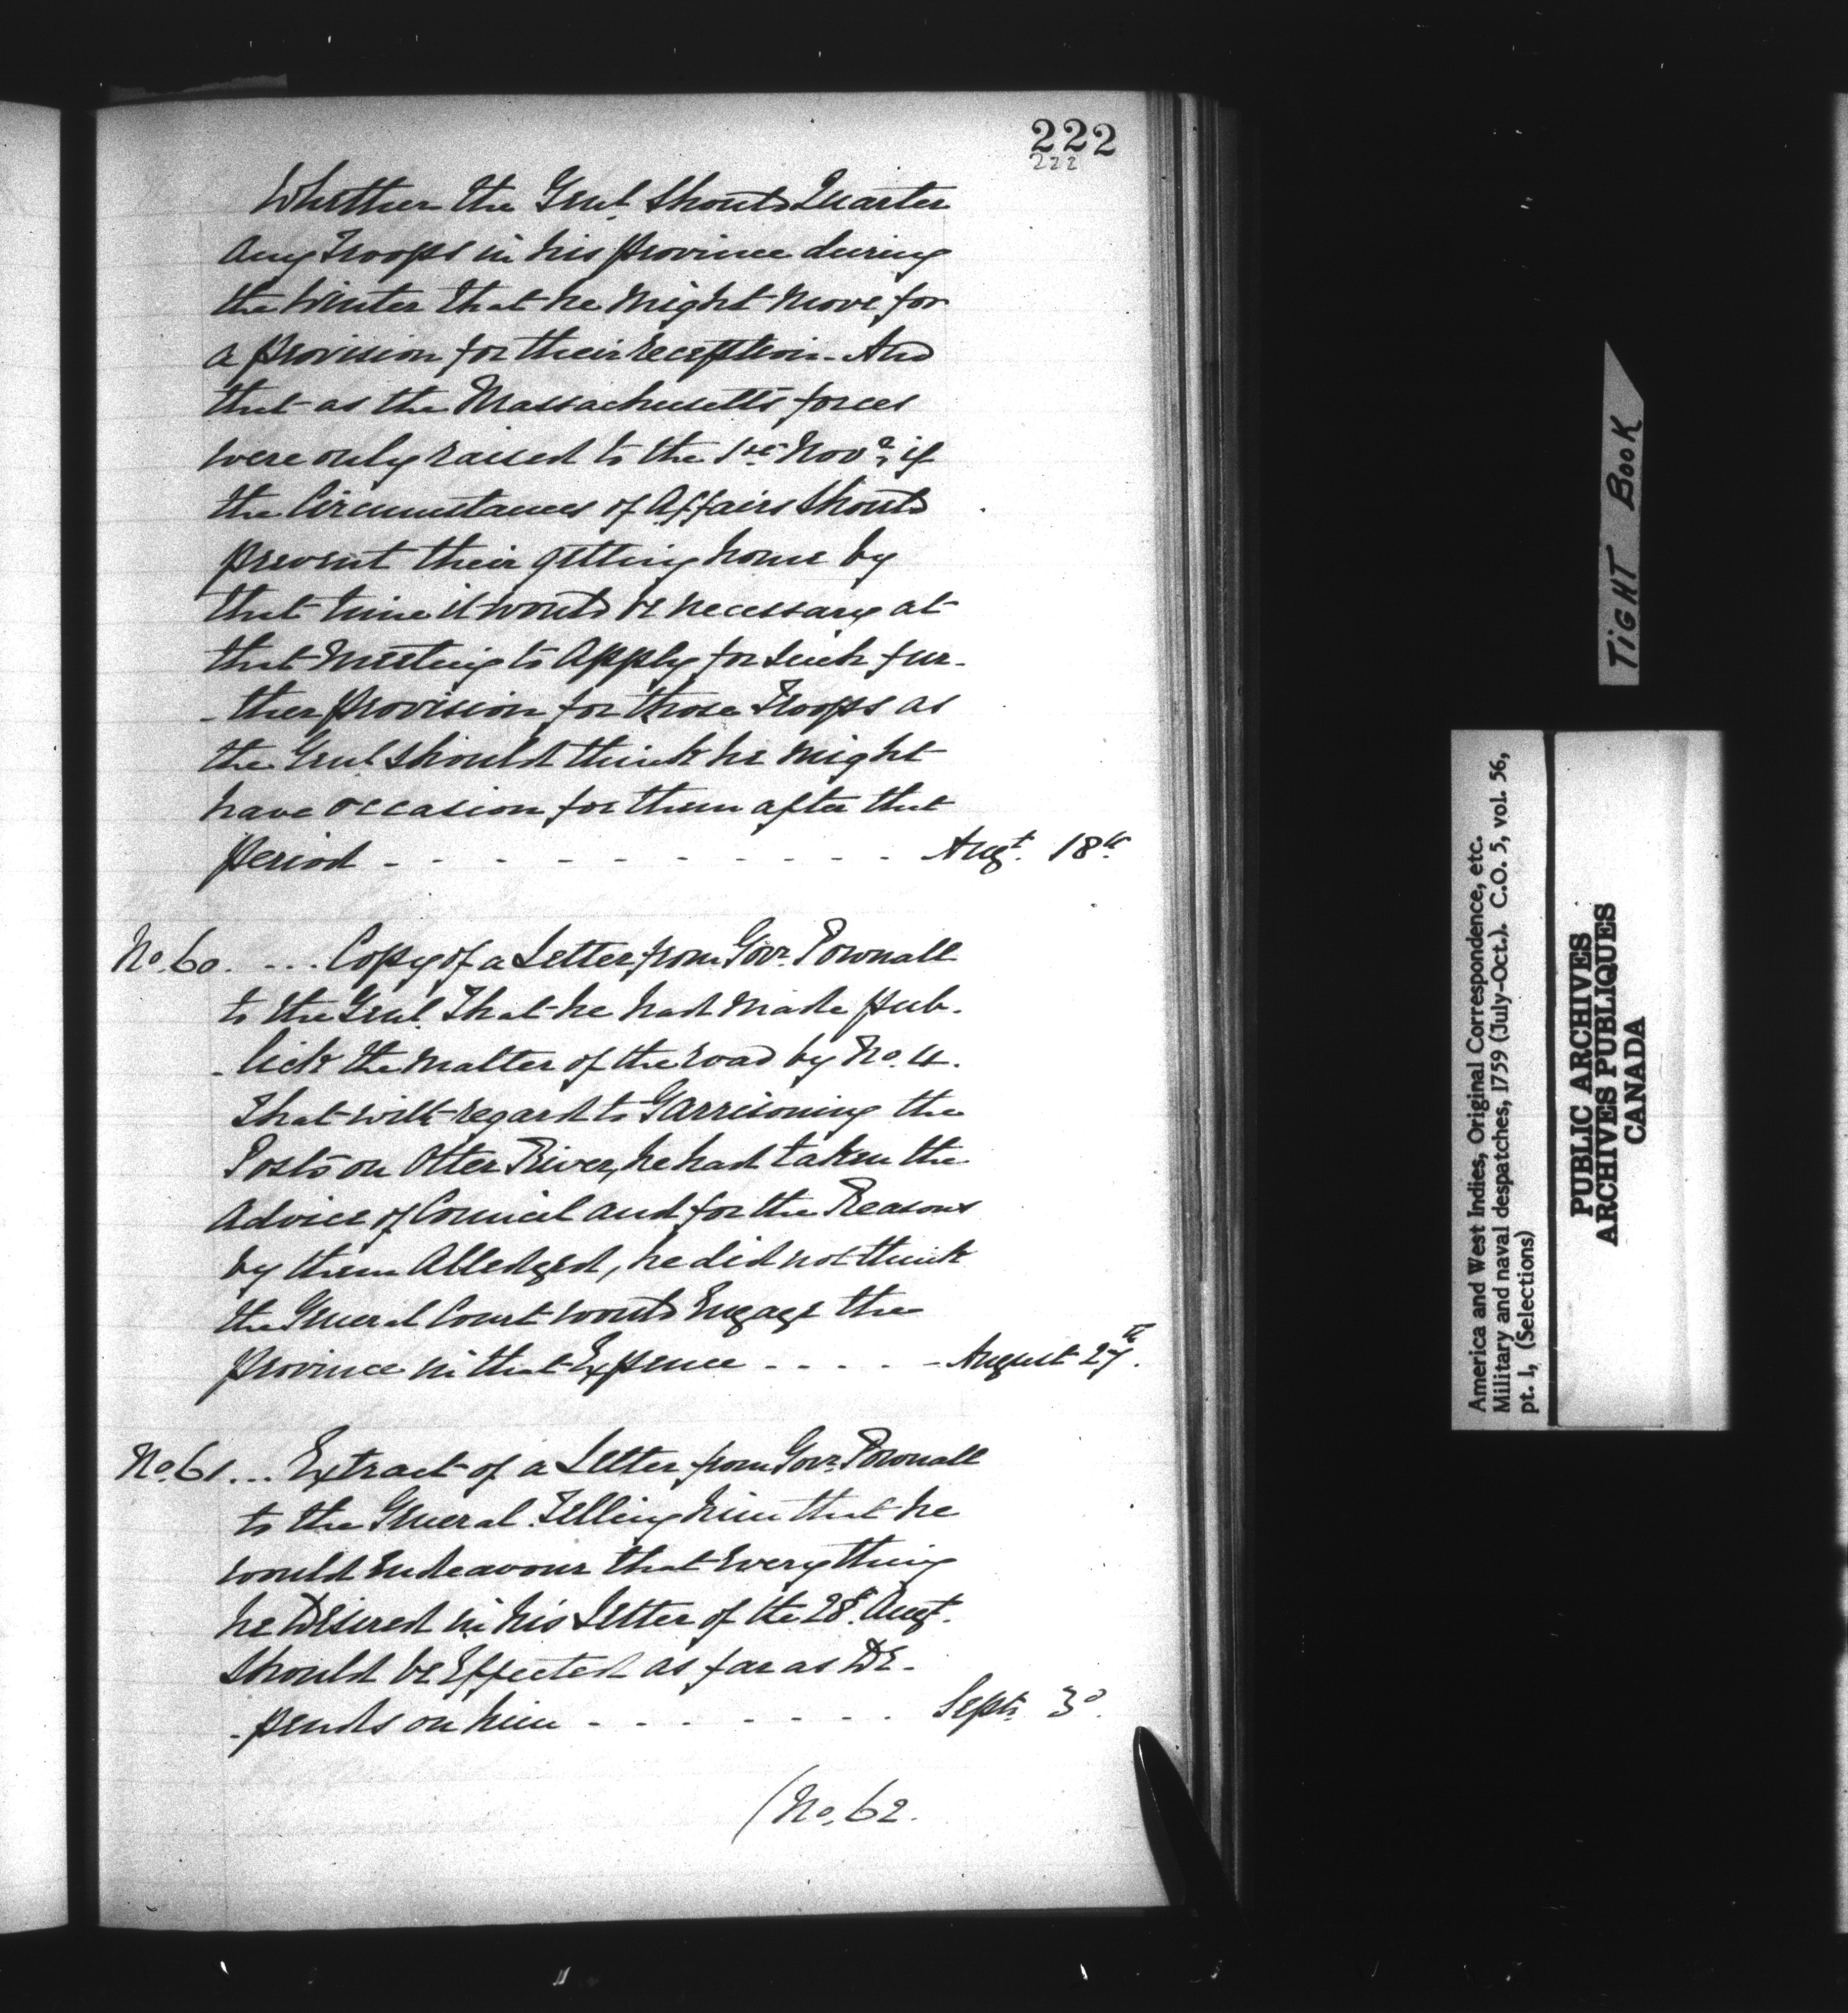 222
222
Whether the Genl. Should Quarter
any Troops in his province during
the Winter that he might move for
a provision for their reception. And
that as the Massachusetts forces
were only raised to the 1st Novr, if
the Circumstances of Affairs Should
prevent their getting home by
that time it would be necessary at
that Meeting to Apply for such fur-
-ther provision for those Troops as
the Genl should think he might
have occasion for them after that
period - - - - - - - - - - - Augt. 18th
No. 60. ... Copy of a Letter from Govr. Pownall
to the Genl. That he had made pub-
-lick the matter of the road by No. 4.
That with regard to Garrisoning the
Posts on Otter River, he had taken the
Advice of Council and for the Reasons
by them Alledged, he did not think
the General Court would Engage the
province in that Expence - - - - - August 27th.
No. 61 ... Extract of a Letter from Govr. Pownall
to the General. Telling him that he
would Endeavour that Everything
he Desired in his Letter of the 28th. Augt.
should be Effected as far as De-
-pends on him - - - - - - - Septr. 3d.
(No. 62.
TiGHT BOOK
America and West Indies, Original Correspondence, etc.
Military and naval despatches, 1759 (July-Oct.). C.O. 5, vol. 56,
pt. 1, (Selections)
PUBLIC ARCHIVES
ARCHIVES PUBLIQUES
CANADA